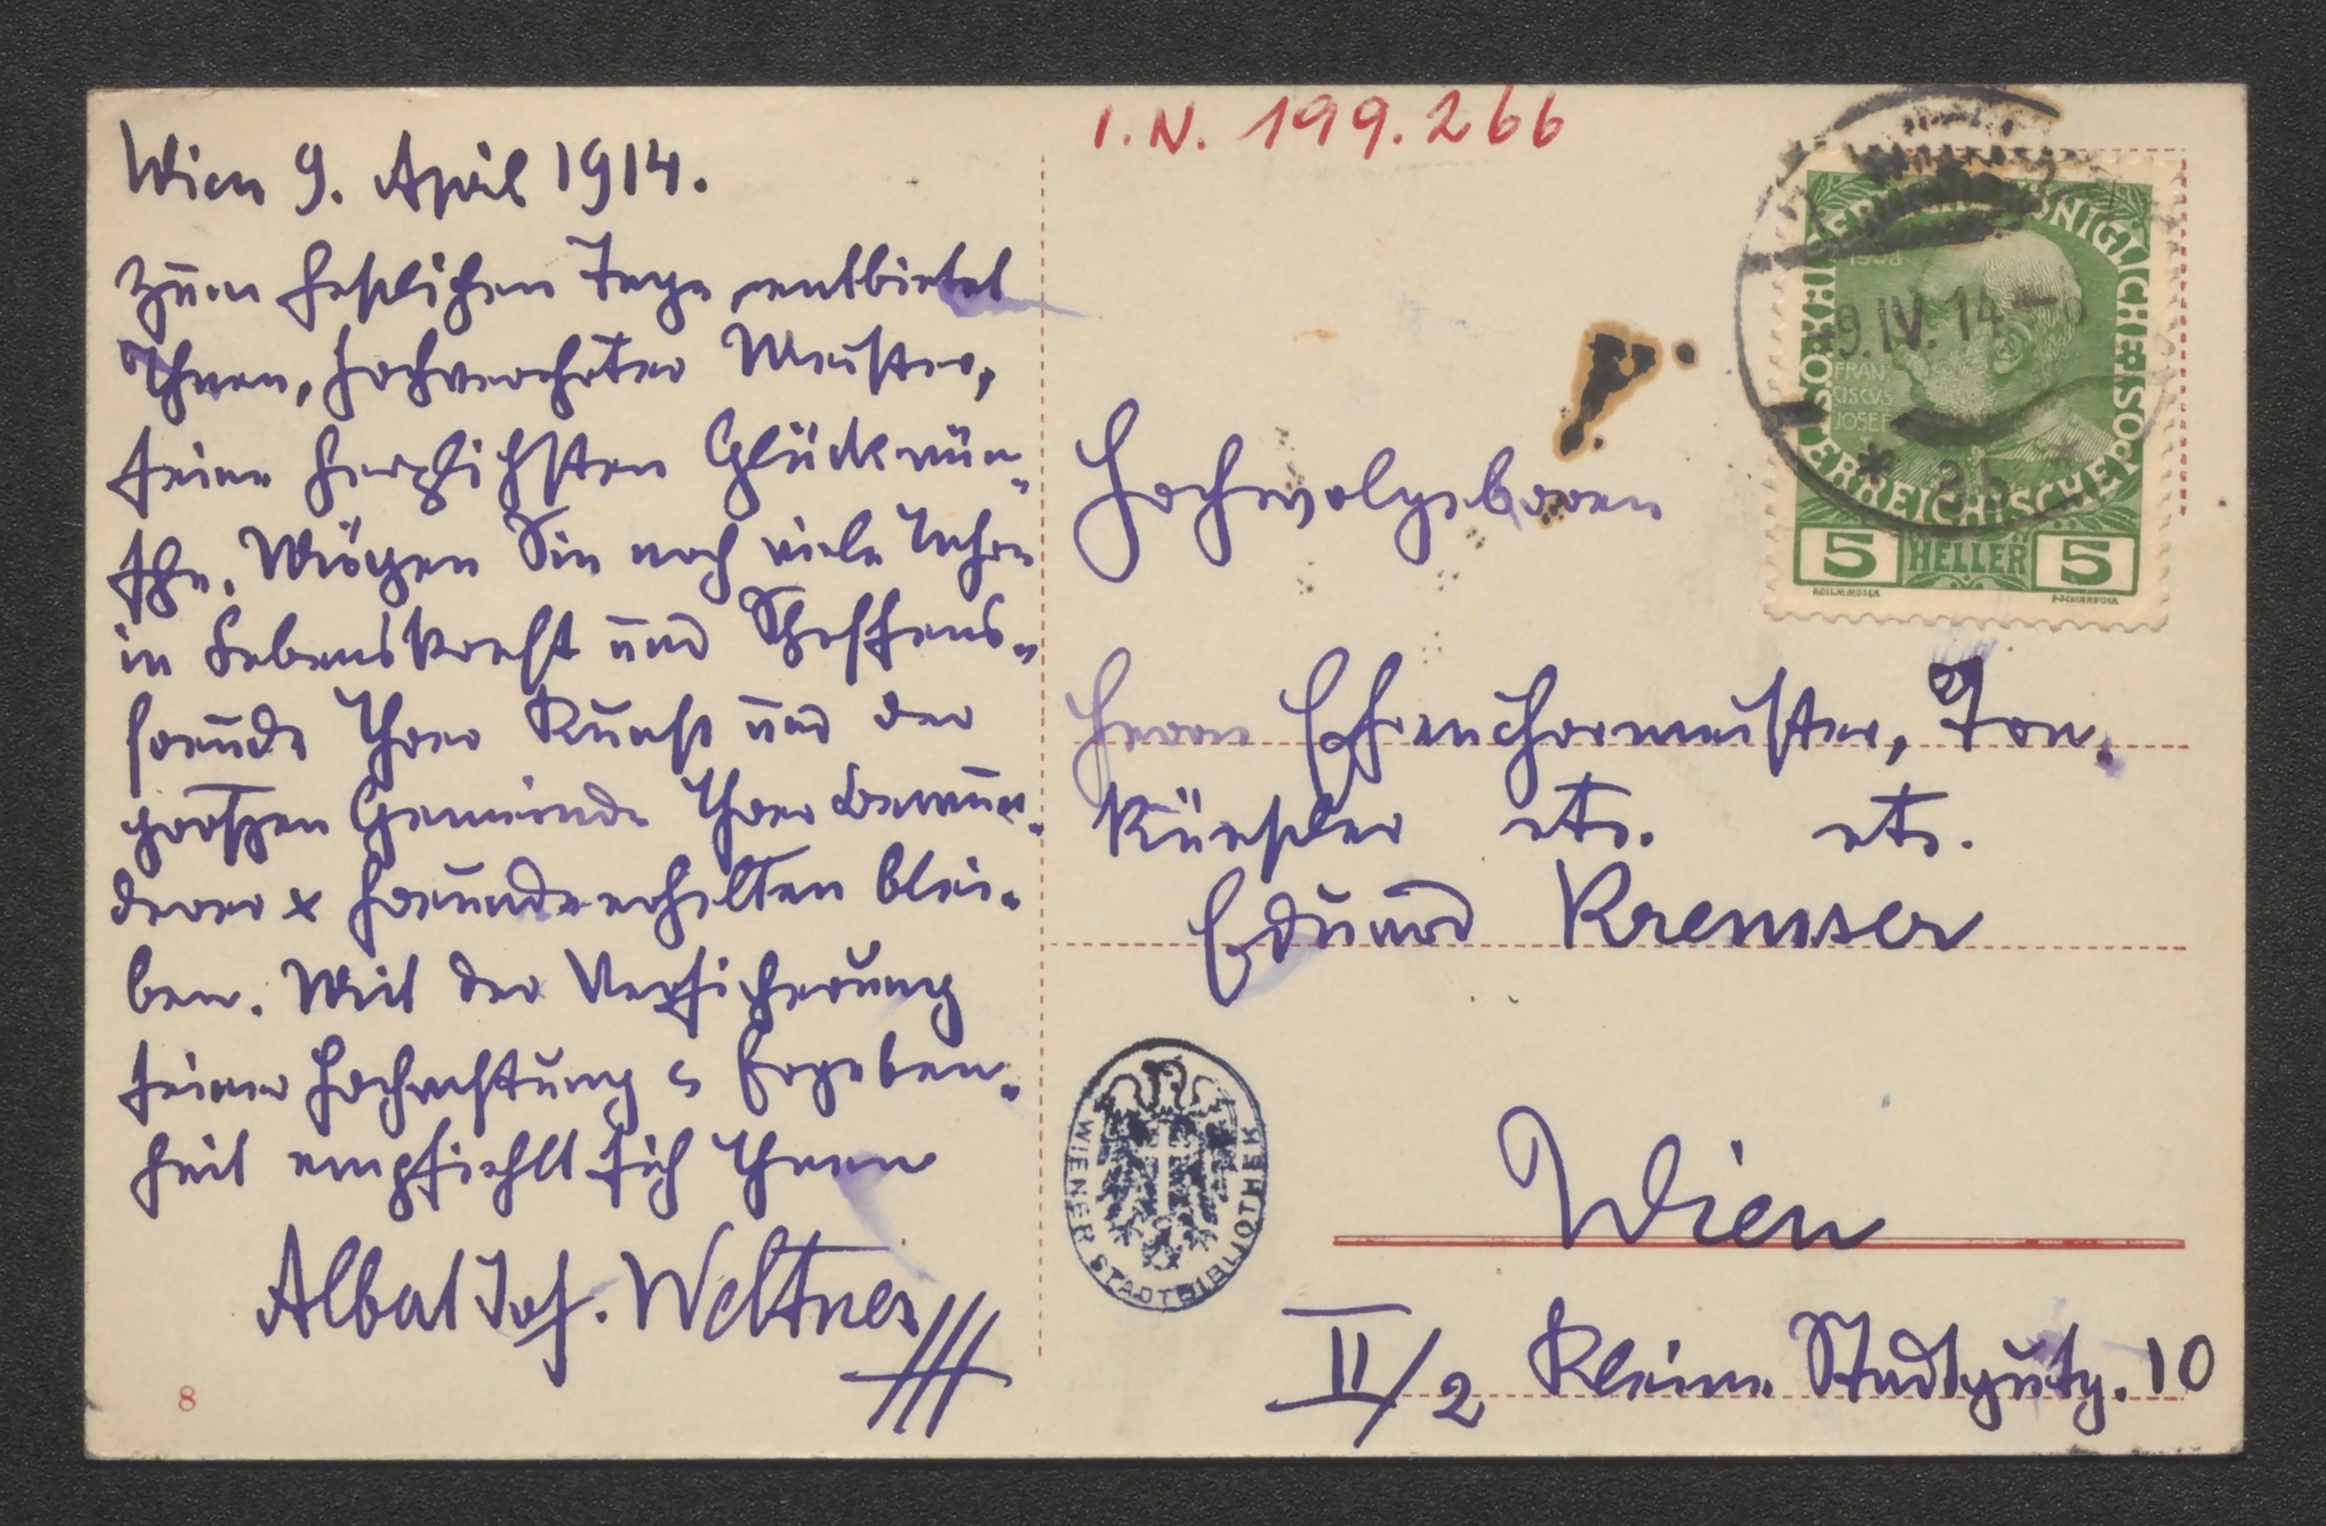 Wien 9. April 1914.
Zum festlichen Tage entbietet
Ihnen, hochverehrter Meister,
seine herzlichsten Glückwün-
sche. Mögen Sie noch viele Jahre
in Lebenskraft und Schaffens-
freude Ihrer Kunst und der
großen Gemeinde Ihrer Bewun-
derer & Freunde erhalten blei-
ben. Mit der Versicherung
seiner Hochachtung & Ergeben-
heit empfiehlt sich Ihnen
Albert Jos. Weltner
8
I.N. 199.266
KAISERLICHE KÖNIGLICHE ÖSTERREICHISCHE POST
1908
FRAN
CISCVS
JOSEF
5 HELLER 5
9.IV.14
* 2b *
Hochwolgeboren
Herrn Ehrenchormeister, Ton-
künstler etc. etc.
Eduard Kremser
WIENER STADTBIBLIOTHEK
Wien
II/2 Kleine Stadtgutg. 10